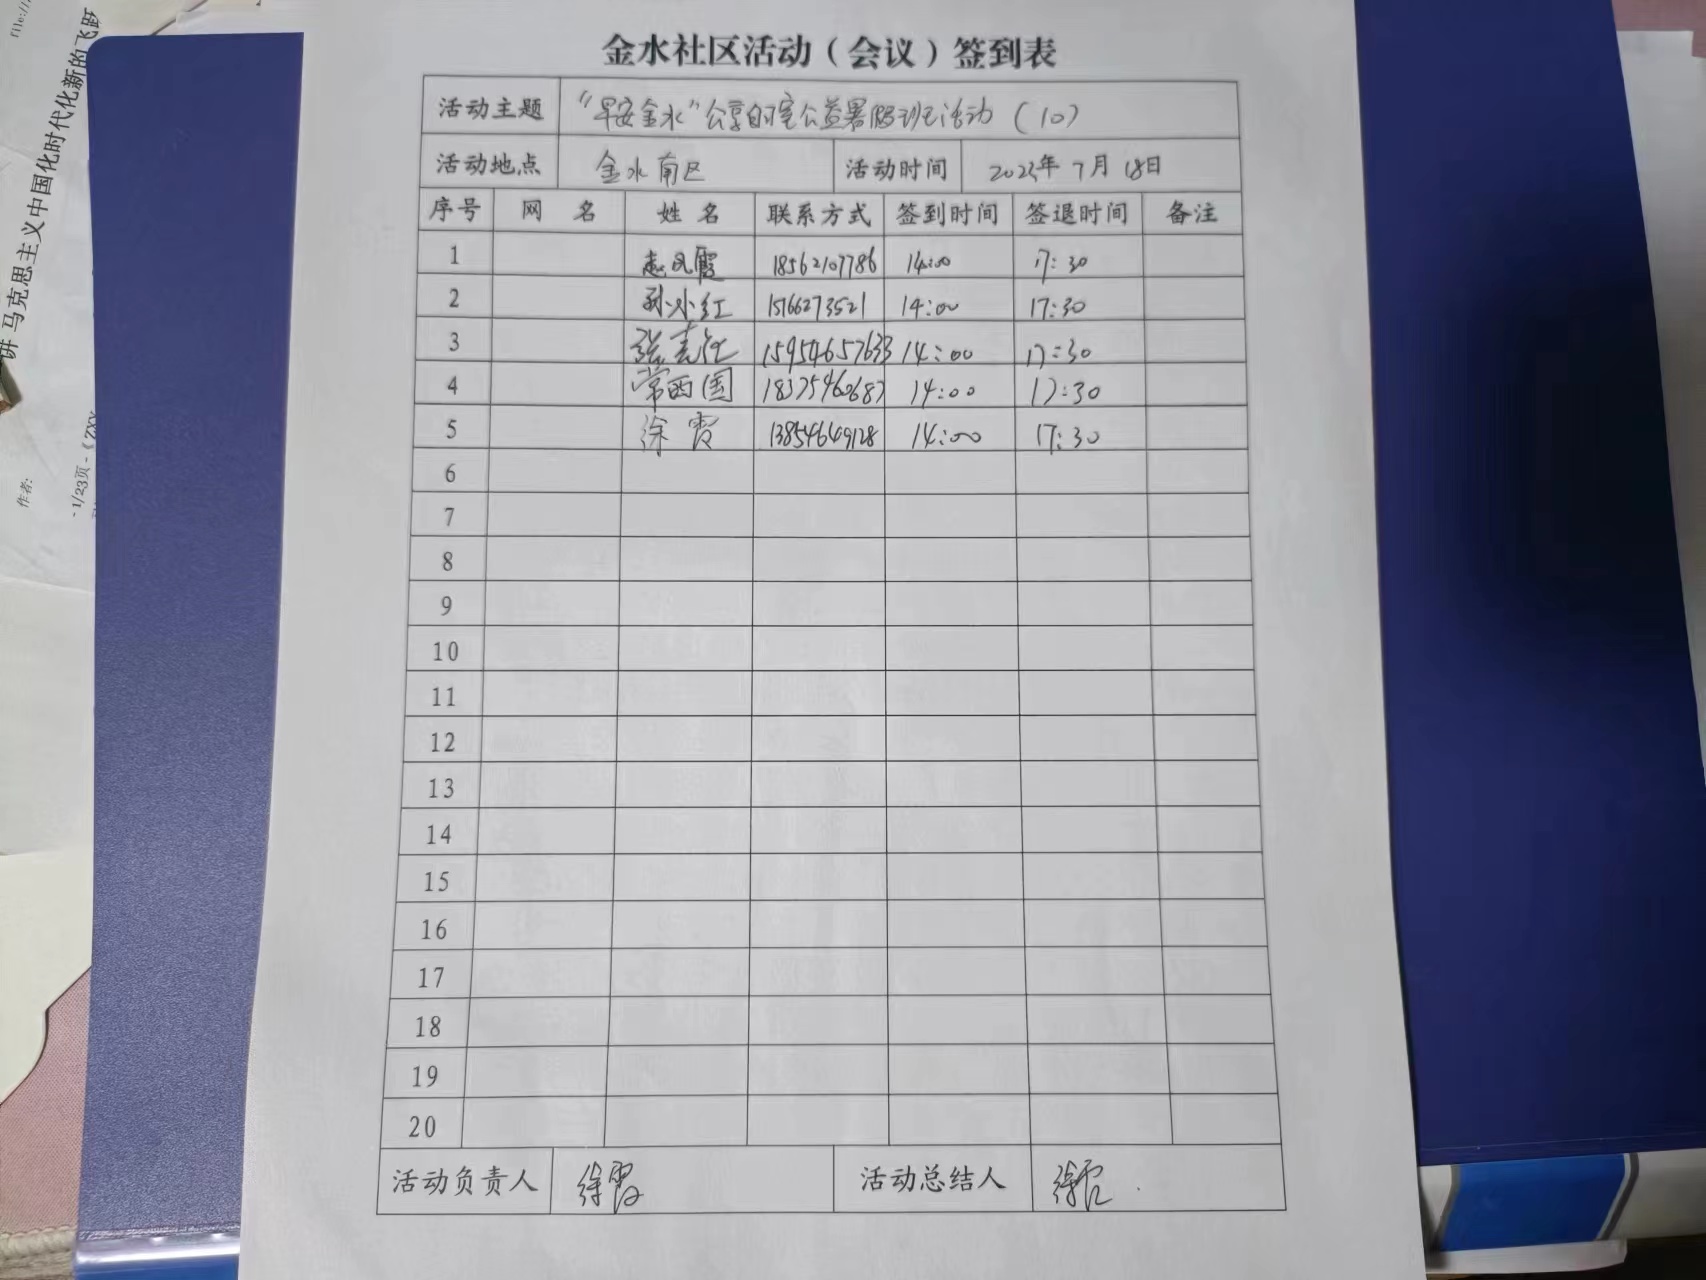 金水社区活动（会议）签到表
活动主题 “早安金水”公享自宅公益暑假班活动（10）
活动地点 金水南区 活动时间 2023年7月18日
序号 网名 姓名 联系方式 签到时间 签退时间 备注
1 赵凤霞 18562107786 14:00 17:30
2 孙小红 15166273521 14:00 17:30
3 15954657633 14:00 17:30
4 常西国 14:00 17:30
5 徐霞 13854649128 14:00 17:30
6
7
8
9
10
11
12
13
14
15
16
17
18
19
20
活动负责人 徐霞 活动总结人 徐霞
讲 马克思主义中国化时代化新的飞跃
作者:
- 1/23页 -
file://